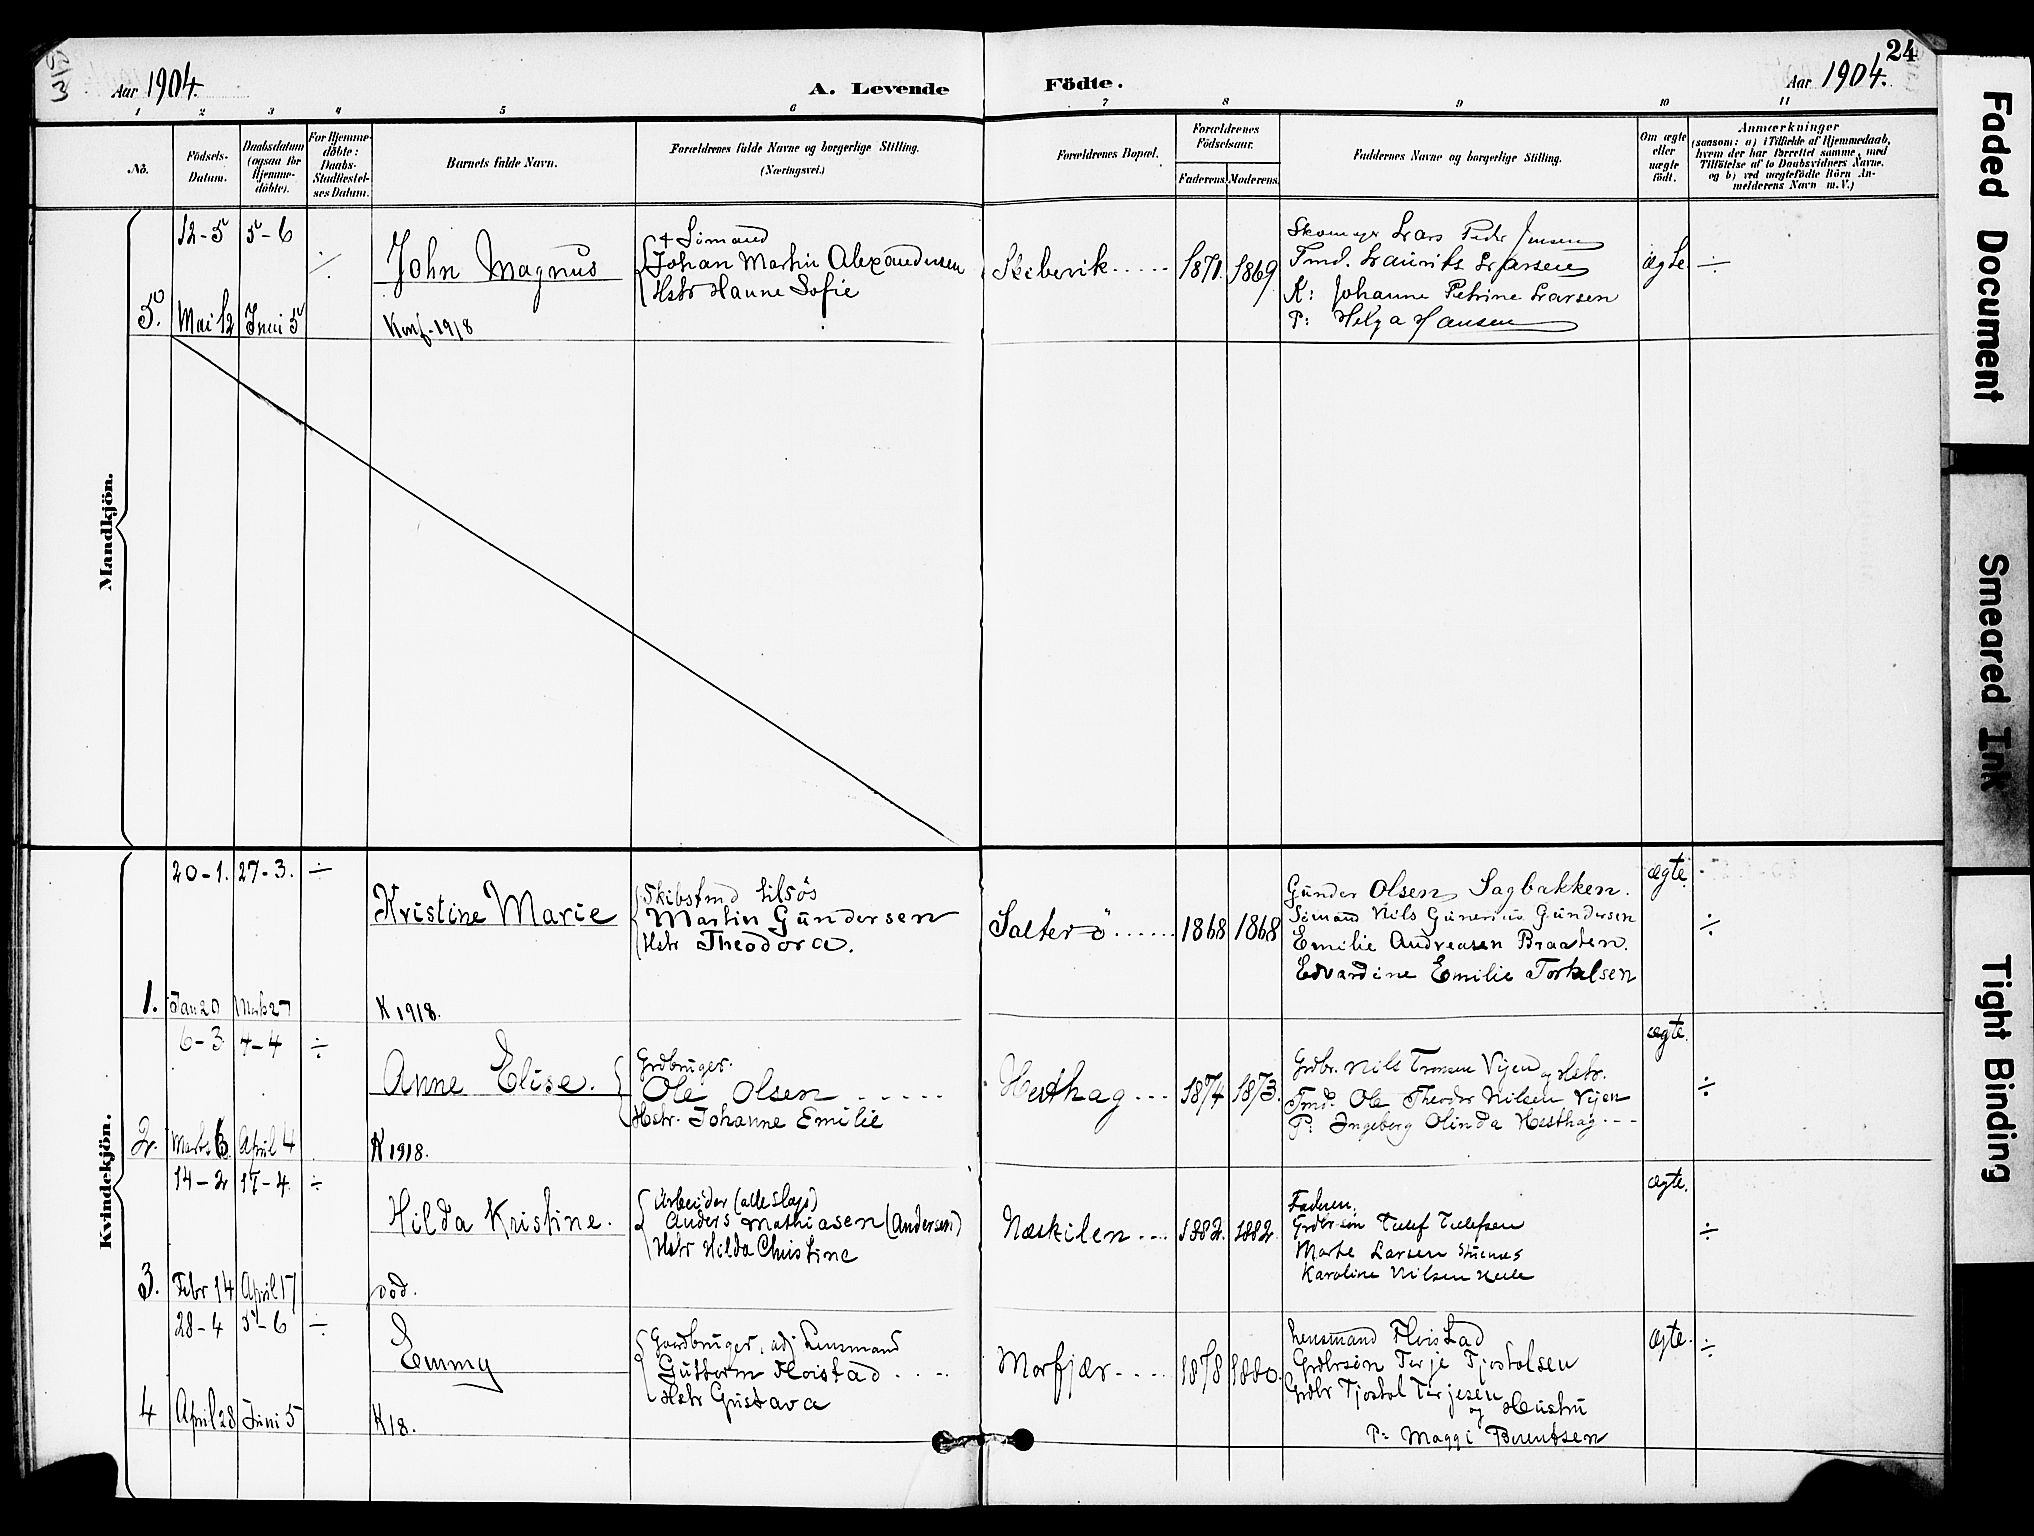 24
Aar 1904.
A. Levende Födte.
Aar 1904.
1 2 3 4 5 6 7 8 9 10 11
No.
Födsels-
Datum.
Daabsdatum
(ogsaa for
Hjemme-
döbte).
For Hjemme-
döbte:
Daabs-
Stadfæstel-
ses Datum.
Barnets fulde Navn.
Forældrenes fulde Navne og borgerlige Stilling.
(Næringsvei.)
Forældrenes Bopæl.
Forældrenes
Födselsaar.
Faderens. Moderens.
Faddernes Navne og borgerlige Stilling.
Om ægte
eller
uægte
födt.
Anmærkninger
(saasom: a) i Tilfælde af Hjemmedaab,
hvem der har forrettet samme, med
Tilföielse af to Daabsvidners Navne,
og b) ved uægtefödte Börn An-
melderens Navn m. V.)
Mandkjön.
12-5 5-6
5. Mai 12 Juni 5
÷
John Magnus
Konf. 1918
+ Sömand
Johan Martin Alexandersen
Hstr Hanne Sofie
Skibervik
1871. 1869
Lars Peder Jensen
Tmd. Laurits Larsen
K: Johanne Petrine Larsen
P: Helga Hansen
ægte ÷
Kvindekjön.
20-1. 27-3. ÷
1. Jan 20 Marts 27
Kristine Marie
K 1918.
Skibstmd tilsös
Martin Gundersen
Hstr Theodora.
Salterö
1868 1868
Gunder Olsen Sagbakken.
Sömand Nils Gunerius Gundersen
Emilie Andreasen Braaten.
Edvardine Emilie Torkelsen
ægte. ÷
6-3 4-4 ÷
2. Marts 6 April 4
Anne Elise.
K 1918.
Grdbruger.
Ole Olsen
Hstr. Johanne Emilie
Hesthag
1874 1873.
Grdbr. Nils Tronsen Vijen og Hstr.
Tmd. Ole Theodor Nilsen Vijen
P: Ingeborg Olinda Hesthag
ægte. ÷
14-2 17-4 ÷
3. Febr 14 April 17
Hilda Kristine.
död.
Arbeider (alle slags)
Anders Mathiasen (Andersen)
Hstr Hilda Christine
Næskilen
1882. 1882
Faderen.
Grdbrsön Tellef Tellefsen
Marte Larsen
Karoline Nilsen
ægte. ÷
28-4 5-6 ÷
4 April 28 Juni 5
Emmy
K 18.
Gaardbruger, adj Lensmand
Guttorm Floistad
Hstr Gustava
Morfjær
1878 1880.
Lensmand Floistad
Grdbrsön Terje Tjostolsen
Grdbr Tjostol Terjesen
og Hustru
P: Maggi Berentsen
ægte. ÷
Faded Document
Smeared Ink
Tight Binding